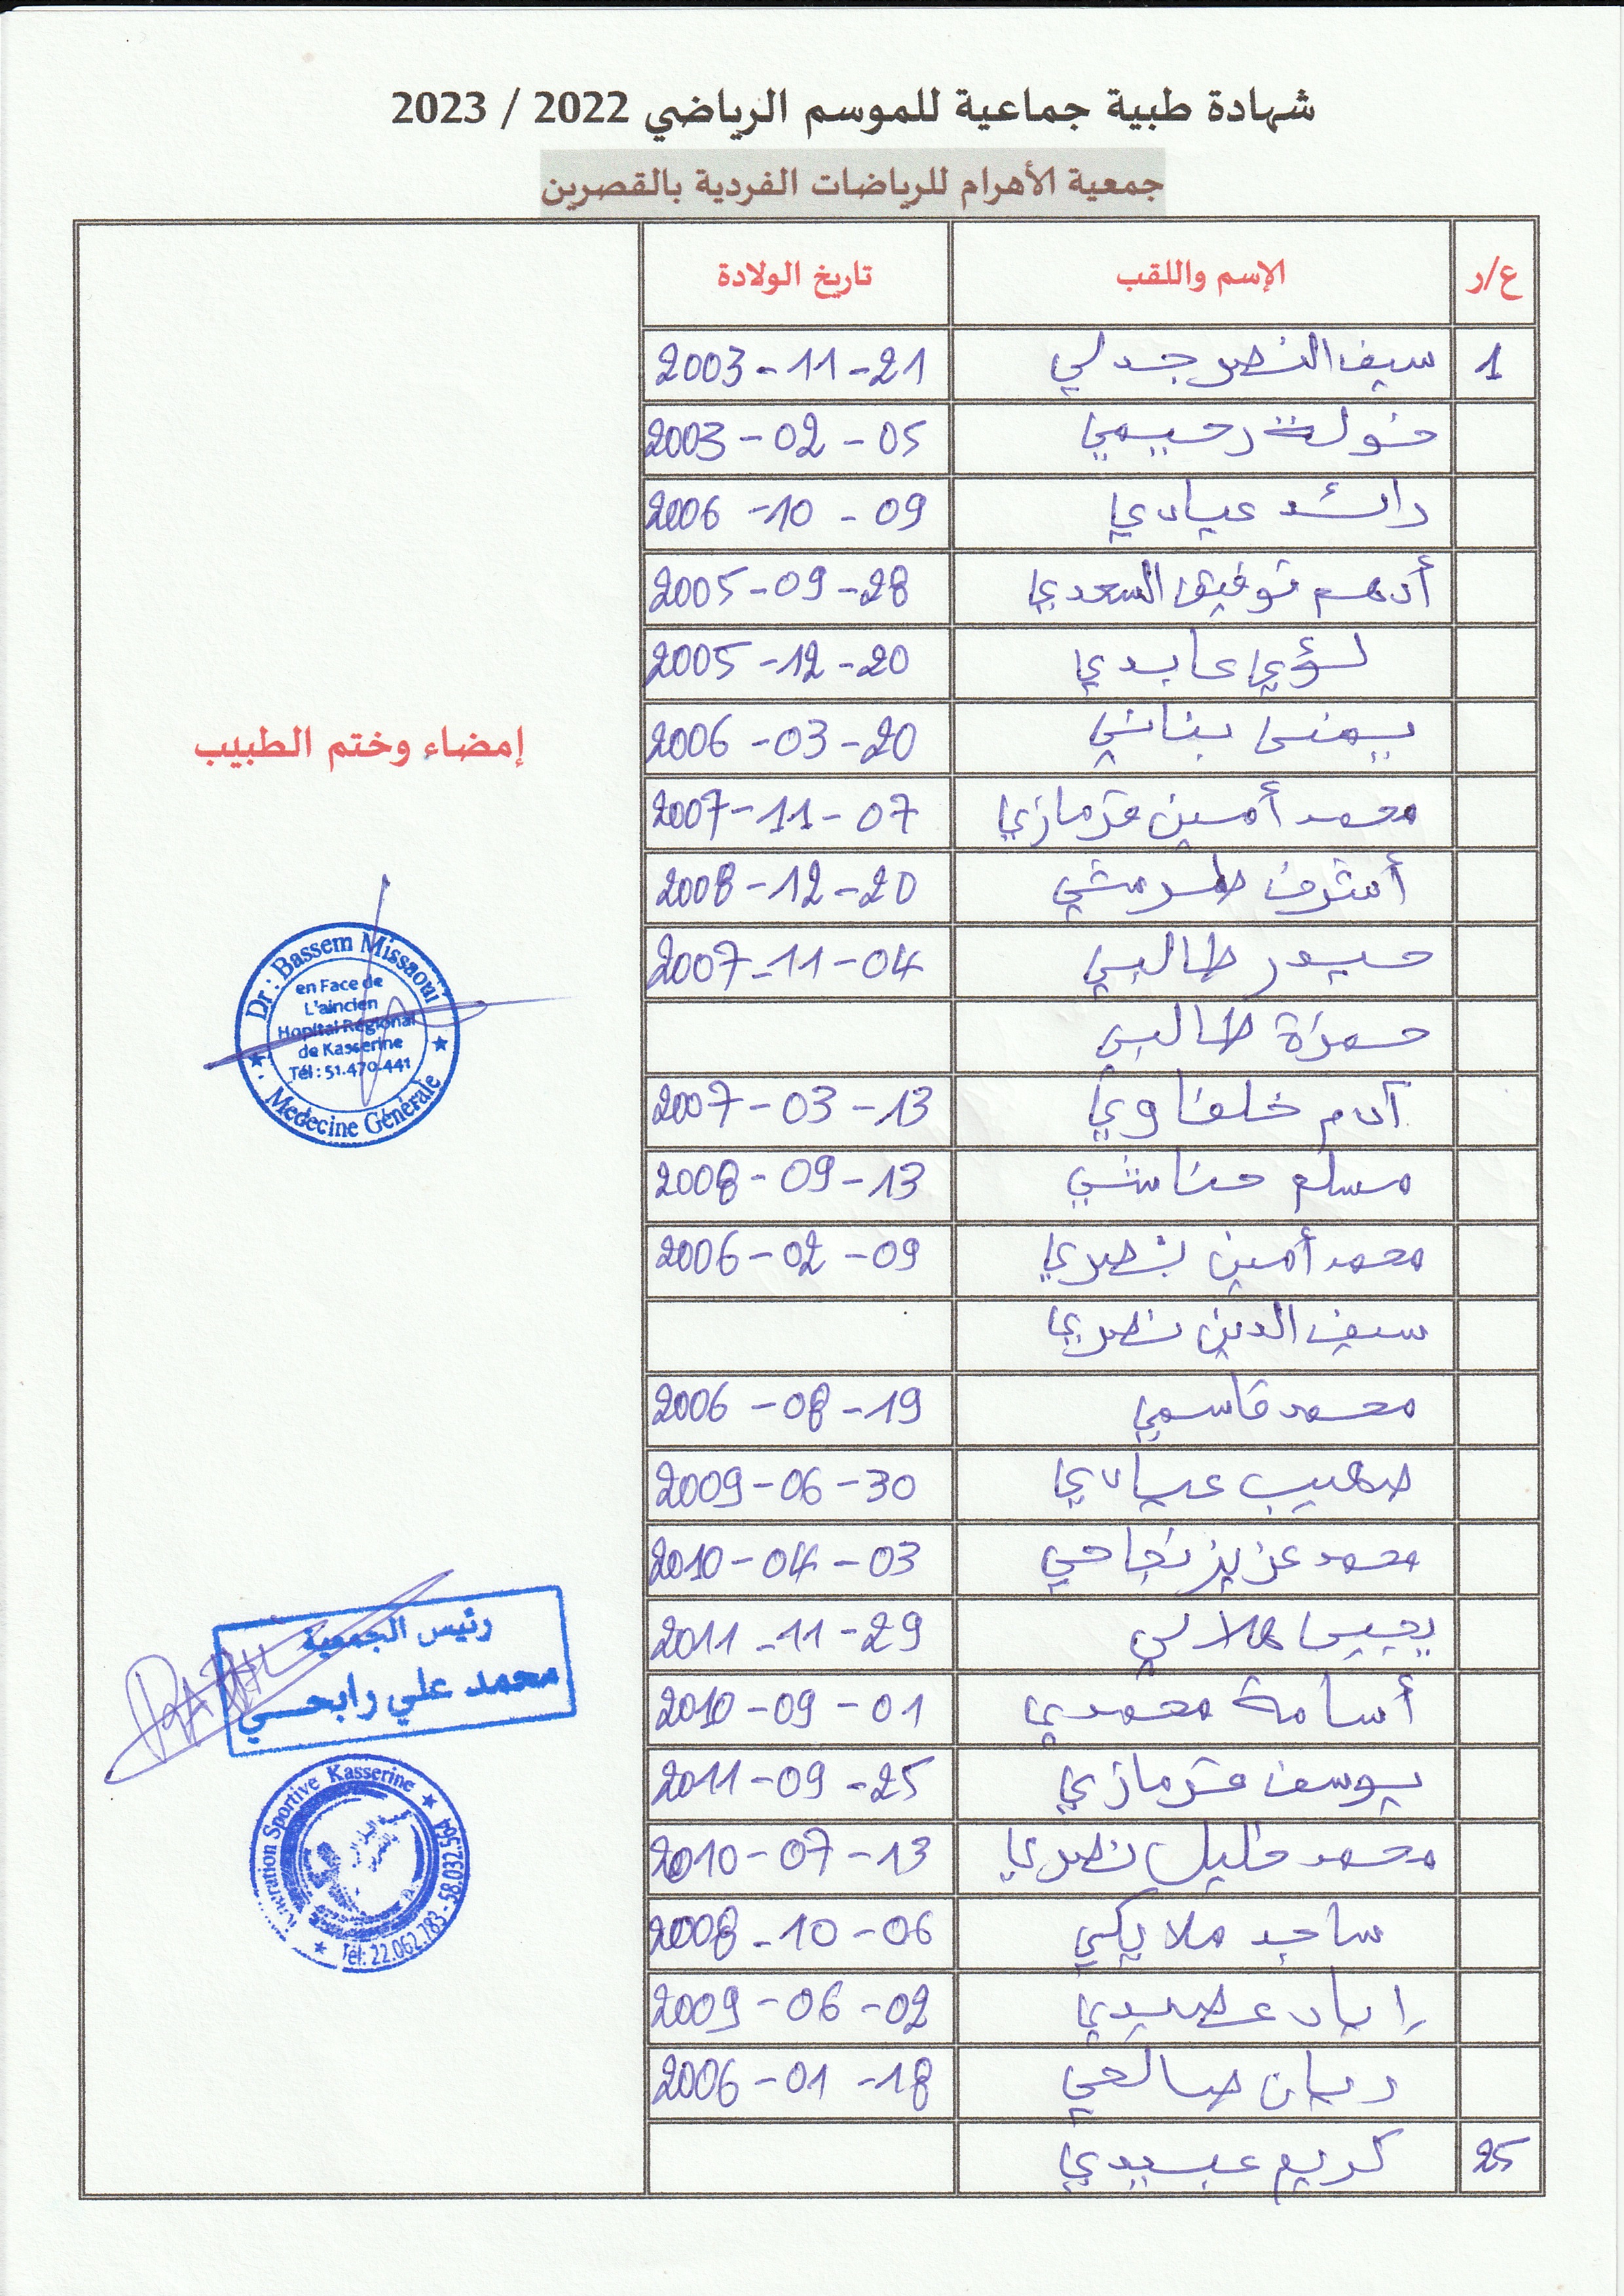 شهادة طبية جماعية للموسم الرياضي 2022 / 2023
جمعية الأهرام للرياضات الفردية بالقصرين
ع/ر الإسم واللقب تاريخ الولادة
1 سيف النصر جدلي 21-11-2003
خولة رحيمي 05-02-2003
رائد عيادي 09-10-2006
أدهم توفيق السعدي 28-09-2005
لؤي عابدي 20-12-2005
يمنى بناني 20-03-2006
محمد أمين قرمازي 07-11-2007
أشرف طرمشي 20-12-2008
حيدر طالبي 04-11-2007
حمزة طالبي
آدم خلفاوي 13-03-2007
مسلم حناشي 13-09-2008
محمد أمين نصري 09-02-2006
سيف الدين نصري
محمد قاسمي 19-08-2006
صهيب عيادي 30-06-2009
محمد عزيز نجاحي 03-04-2010
يحيى هلالي 29-11-2011
أسامة محمدي 01-09-2010
يوسف قرمازي 25-09-2011
محمد خليل نصري 13-07-2010
ساجد ملايكي 06-10-2008
إياد عصيدي 02-06-2009
ريان صالحي 18-01-2006
25 كريم عبيدي
إمضاء وختم الطبيب
Dr : Bassem Missaoui
en Face de
L'aincien
Hopital Régional
de Kasserine
Tél : 51.470.441
Medecine Générale
رئيس الجمعية
محمد علي رابحي
Sportive Kasserine
Tél: 22.062.783 - 58.032.564